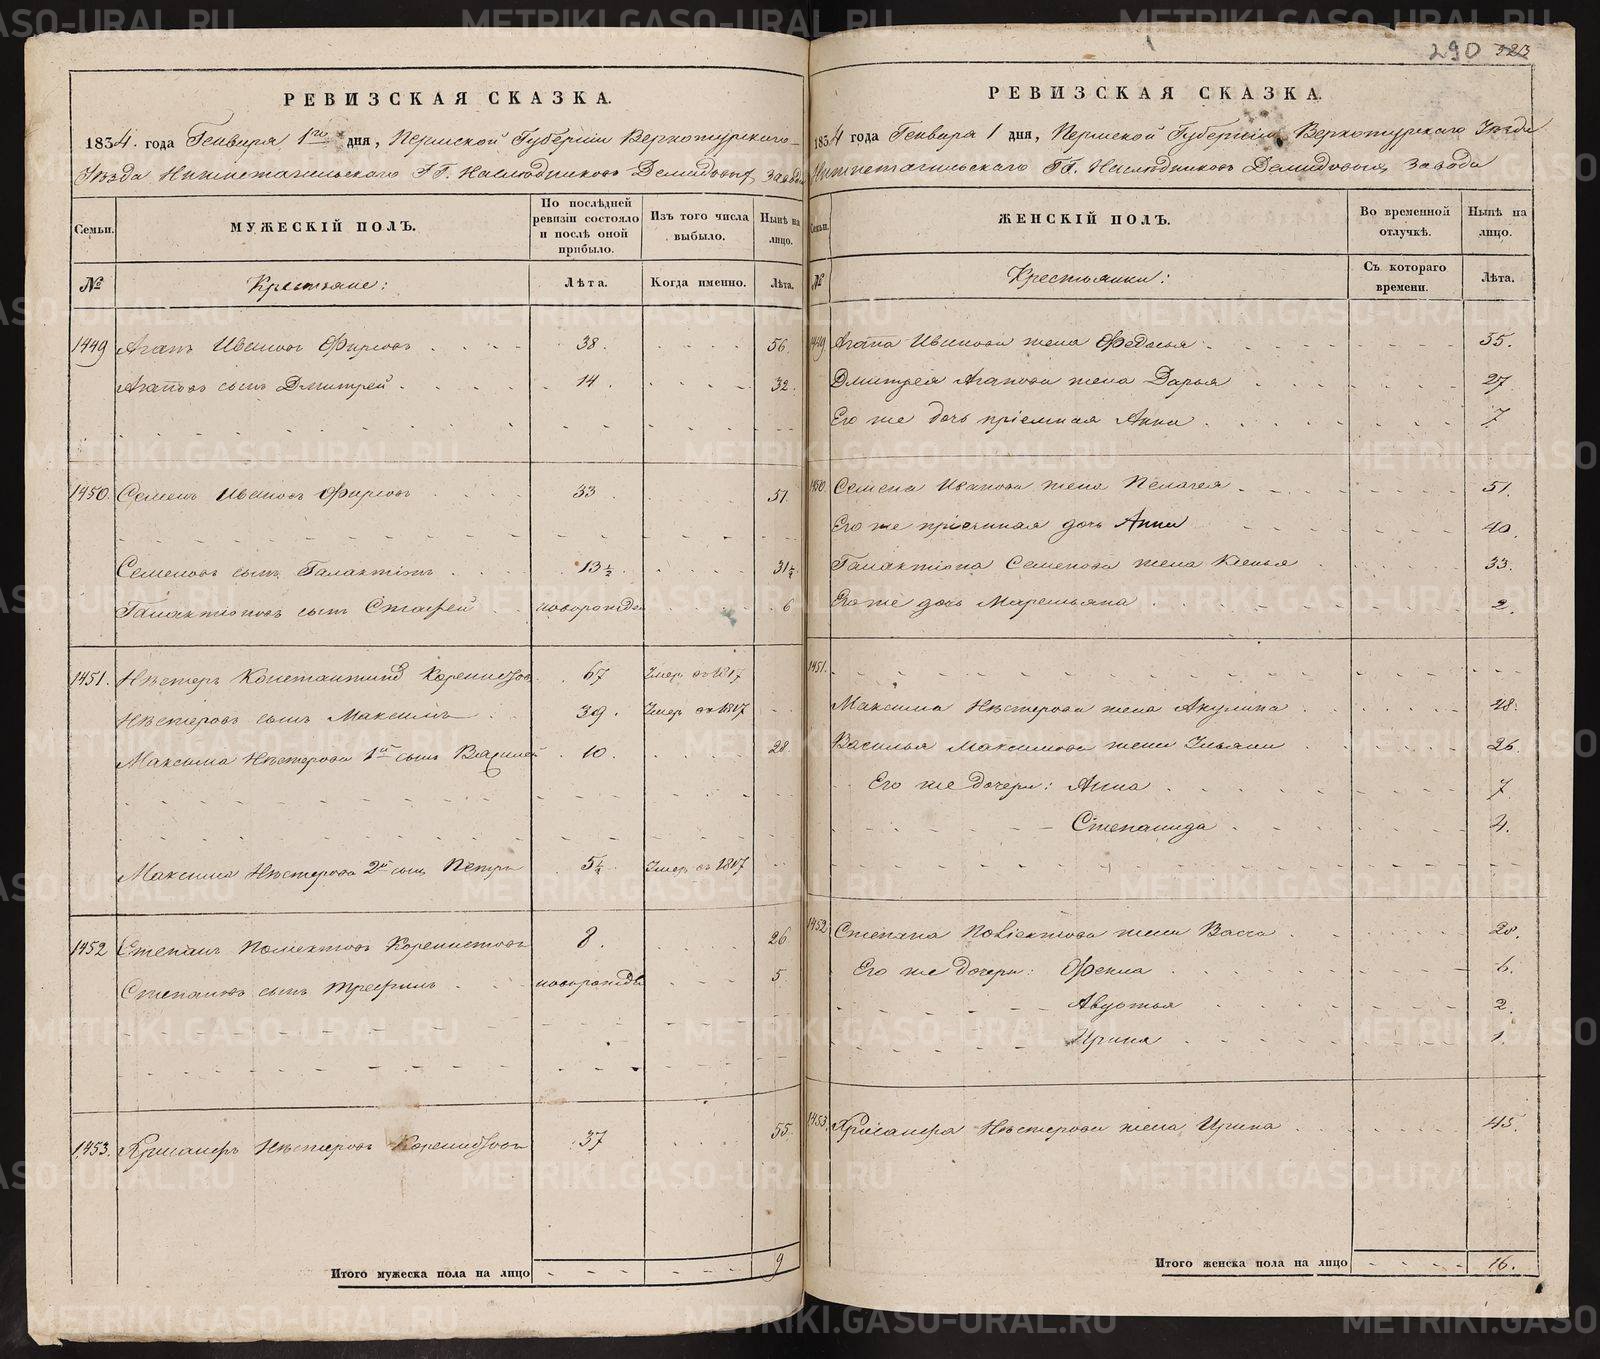 290 323
РЕВИЗСКАЯ СКАЗКА.
1834. года Генваря 1го дня, Пермской Губернии Верхотурскаго
Уѣзда Нижнетагильскаго ГГ. Наслѣдниковъ Демидовыхъ завода
Семьи.
МУЖЕСКІЙ ПОЛЪ.
По послѣдней ревизіи состояло и послѣ оной прибыло.
Изъ того числа выбыло.
Нынѣ на лицо.
№
Крестьяне:
Лѣта.
Когда именно.
Лѣта.
1449 Агапъ Ивановъ Фирсовъ 38. 56.
Агаповъ сынъ Дмитрей 14. 32.
1450. Семенъ Ивановъ Фирсовъ 33 51.
Семеновъ сынъ Галактіонъ 13½ 31½
Галактіоновъ сынъ Статѣй новорожде 6
1451. Нѣстеръ Константинов 67 Умеръ въ 1817
Нѣстеровъ сынъ Максимъ 39. Умеръ въ 1817
Максима Нѣстерова 1й сынъ Василей 10. 28.
Максима Нѣстерова 2й сынъ Петръ 5½ Умеръ въ 1817
1452 Степанъ 8. 26
Степановъ сынъ Трефилъ новорожде 5
1453. Нѣстеровъ 37 55.
Итого мужеска пола на лицо 9
РЕВИЗСКАЯ СКАЗКА.
1834 года Генваря 1 дня, Пермской Губерніи Верхотурскаго Уѣзда
Нижнетагильскаго ГГ. Наслѣдниковъ Демидовыхъ завода
Семьи.
ЖЕНСКІЙ ПОЛЪ.
Во временной отлучкѣ.
Нынѣ на лицо.
№
Крестьянки:
Съ котораго времени.
Лѣта.
1449 Агапа Иванова жена Федосья 55.
Дмитрея Агапова жена Дарья 27
Его же дочь пріемная Анна 7
1450. Семена Иванова жена Пелагея 51.
Его же пріемная дочь Анна 40.
Галактіона Семенова жена 33.
Его же дочь Маремьяна 2.
1451.
Максима Нѣстерова жена Акулина 48.
Василья Максимова жена Ульяна 26.
Его же дочери: Анна 7
Степанида 4.
1452. Степана жена Васса 28.
Его же дочери: Фекла 6.
Авдотья 2.
Ирина 1.
1453. Нѣстерова жена Ирина 45.
Итого женска пола на лицо 16.
METRIKI.GASO-URAL.RU